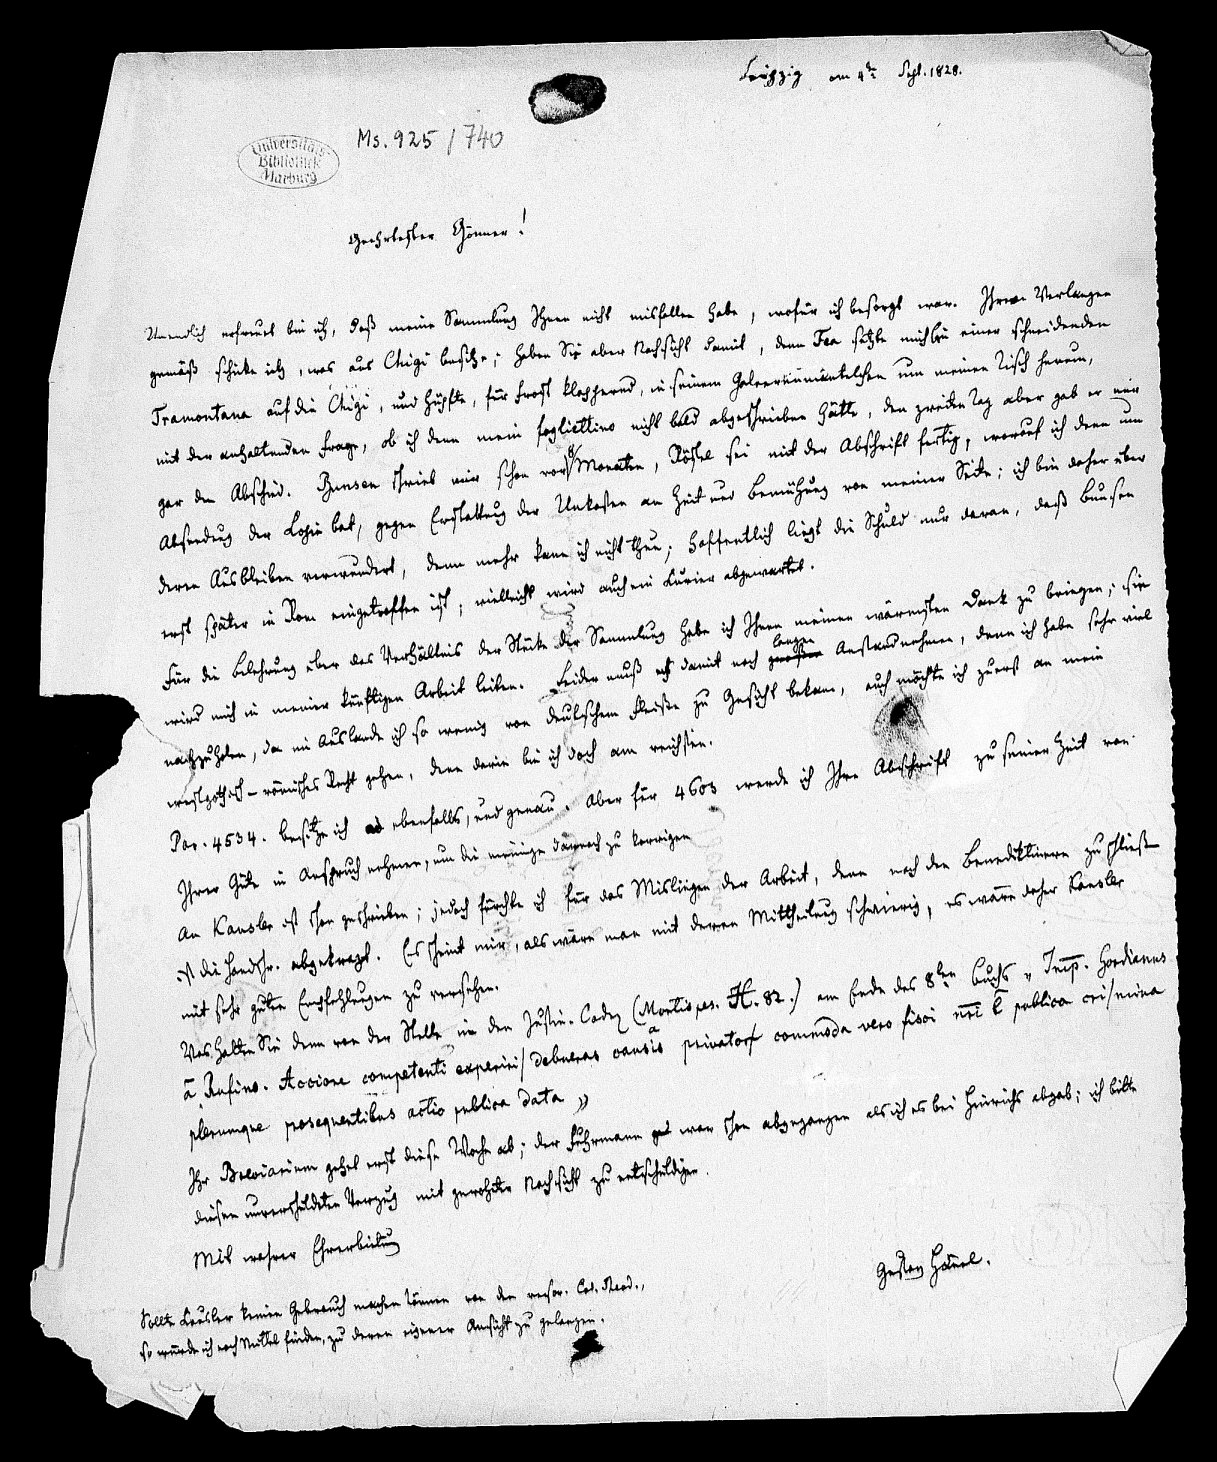 Leipzig am 4ten Sept. 1828.
Ms. 925 / 740
Universitäts-
Bibliothek
Marburg
Geehrtester Gönner!
Unendlich erfreuet bin ich, daß meine Sammlung Ihnen nicht misfallen habe, wofür ich besorgt war. Ihrem Verlangen
gemäß schicke ich, was aus Chigi besitze; haben Sie aber Nachsicht damit, denn Fea setzte mich bei einer schneidenden
Tramontana auf die Chigi, und hüpfte, für Frost klappernd, in seinem um meinen Tisch herum,
mit der anhaltenden Frage, ob ich denn mein fogliettino nicht bald abgeschrieben hätte, den zweiten Tag aber gab er mir
gar den Abschied. Bunsen schrieb mir schon vor 8 Monaten, Röstel sei mit der Abschrift fertig, worauf ich denn um
Absendung der Copie bat, gegen Erstattung der Unkosten an Zeit und Bemühung von meiner Seite; ich bin daher über
deren Ausbleiben verwundert, denn mehr kann ich nicht thun; hoffentlich liegt die Schuld nur daran, daß Bunsen
erst später in Rom eingetroffen ist; vielleicht wird auch ein Kurier abgewartet.
Für die Belehrung über das Verhältnis der Stücke der Sammlung habe ich Ihnen meinen wärmsten Dank zu bringen; sie
wird mich in meiner künftigen Arbeit leiten. Leider muß ich damit noch langen Anstand nehmen, denn ich habe sehr viel
nachzuholen, da im Auslande ich so wenig von deutschem Fleiße zu Gesicht bekam, auch möchte ich zuerst an mein
westgothisch-römisches Recht gehen, denn darin bin ich doch am reichsten.
Par. 4534. besitze ich ebenfalls, und genau. Aber für 4603 werde ich Ihre Abschrift zu seiner Zeit von
Ihrer Güte in Anspruch nehmen, um die meinige darnach zu korrigen
An Kausler ist schon geschrieben; jedoch fürchte ich für das Mislingen der Arbeit, denn nach den Benediktinern zu schließen
ist die Handschr. abgekrazt. Es scheint mir, als wäre man mit deren Mittheilung schwierig, es wäre daher Kausler
mit sehr guten Empfehlungen zu versehen.
Was halten Sie denn von der Stelle in den Justin. Codex (Montispes. H. 82.) am Ende des 8ten Buchs „ Imp. Gordianus
a Rufino. Accione competenti experiri debueras causis privator commoda vero fisci publica crimina
plerumque prosequentibus actio publica data „
Ihr Breviarium gehet erst diese Woche ab; der Fuhrmann war schon abgegangen als ich es bei Hinrichs abgab; ich bitte
diesen unverschuldeten Verzug mit gewohnter Nachsicht zu entschuldigen.
Mit wahrer Ehrerbietung
Gustav Hänel.
Sollte Kausler keinen Gebrauch machen können von den Cod. Theod.,
so würde ich noch Mittel finden, zu deren eigener Ansicht zu gelangen.